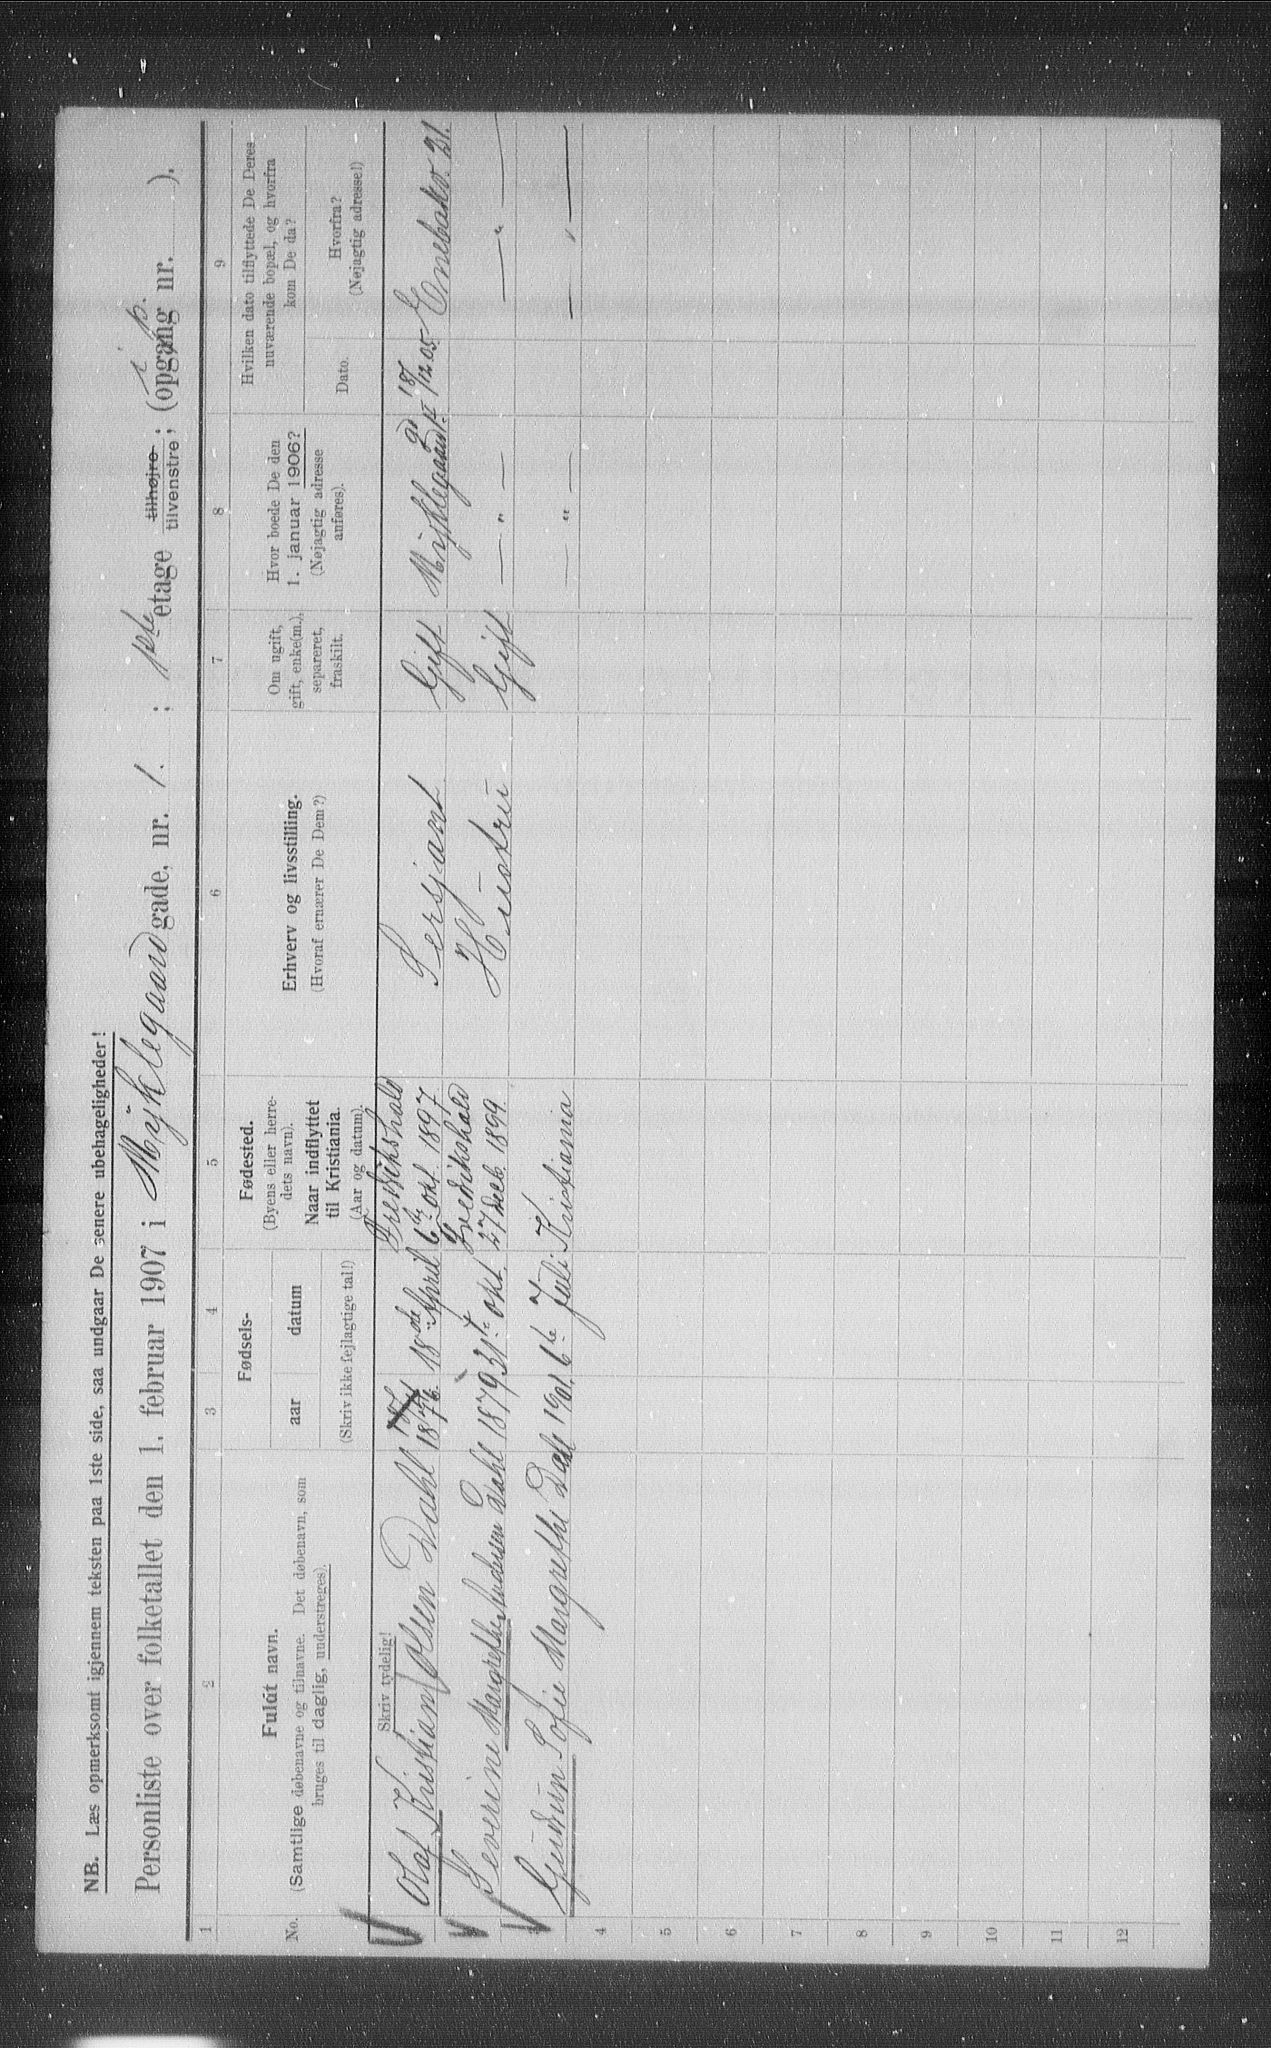 NB. Læs opmerksomt igjennem teksten paa 1ste side, saa undgaar De senere ubehageligheder!
Personliste over folketallet den 1. februar 1907 i Myklegaard gade, nr. 1. ; 1ste etage tilhøjre tilvenstre ; (opgang nr. ).
i p.
1 2 3 4 5 6 7 8 9
No.
Fuldt navn.
(Samtlige døbenavne og tilnavne. Det døbenavn, som
bruges til daglig, understreges).
Fødsels-
aar datum
(Skriv ikke fejlagtige tal!)
Fødested.
(Byens eller herre-
dets navn).
Naar indflyttet
til Kristiania.
(Aar og datum).
Erhverv og livsstilling.
(Hvoraf ernærer De Dem?)
Om ugift,
gift, enke(m.),
separeret,
fraskilt.
Hvor boede De den
1. januar 1906?
(Nøjagtig adresse
anføres).
Hvilken dato tilflyttede De Deres
nuværende bopæl, og hvorfra
kom De da?
Dato.
Hvorfra?
(Nøjagtig adresse!)
Skriv tydelig!
Olaf Kristian Olsen Dahl 1876 18de April Fredrikshald 6te okt. 1897 Sersjant Gift Myklegaard gd 1 18/12 05 Enebakv. 21.
Severine Margrethe Andersen Dahl 1879 31te okt. Fredrikshald 27 decb. 1899. Hustru Gift — " — — " —
Gudrun Sofie Margrethe Dahl 1901. 6te Juli Kristiania — " — — " —
4
5
6
7
8
9
10
11
12